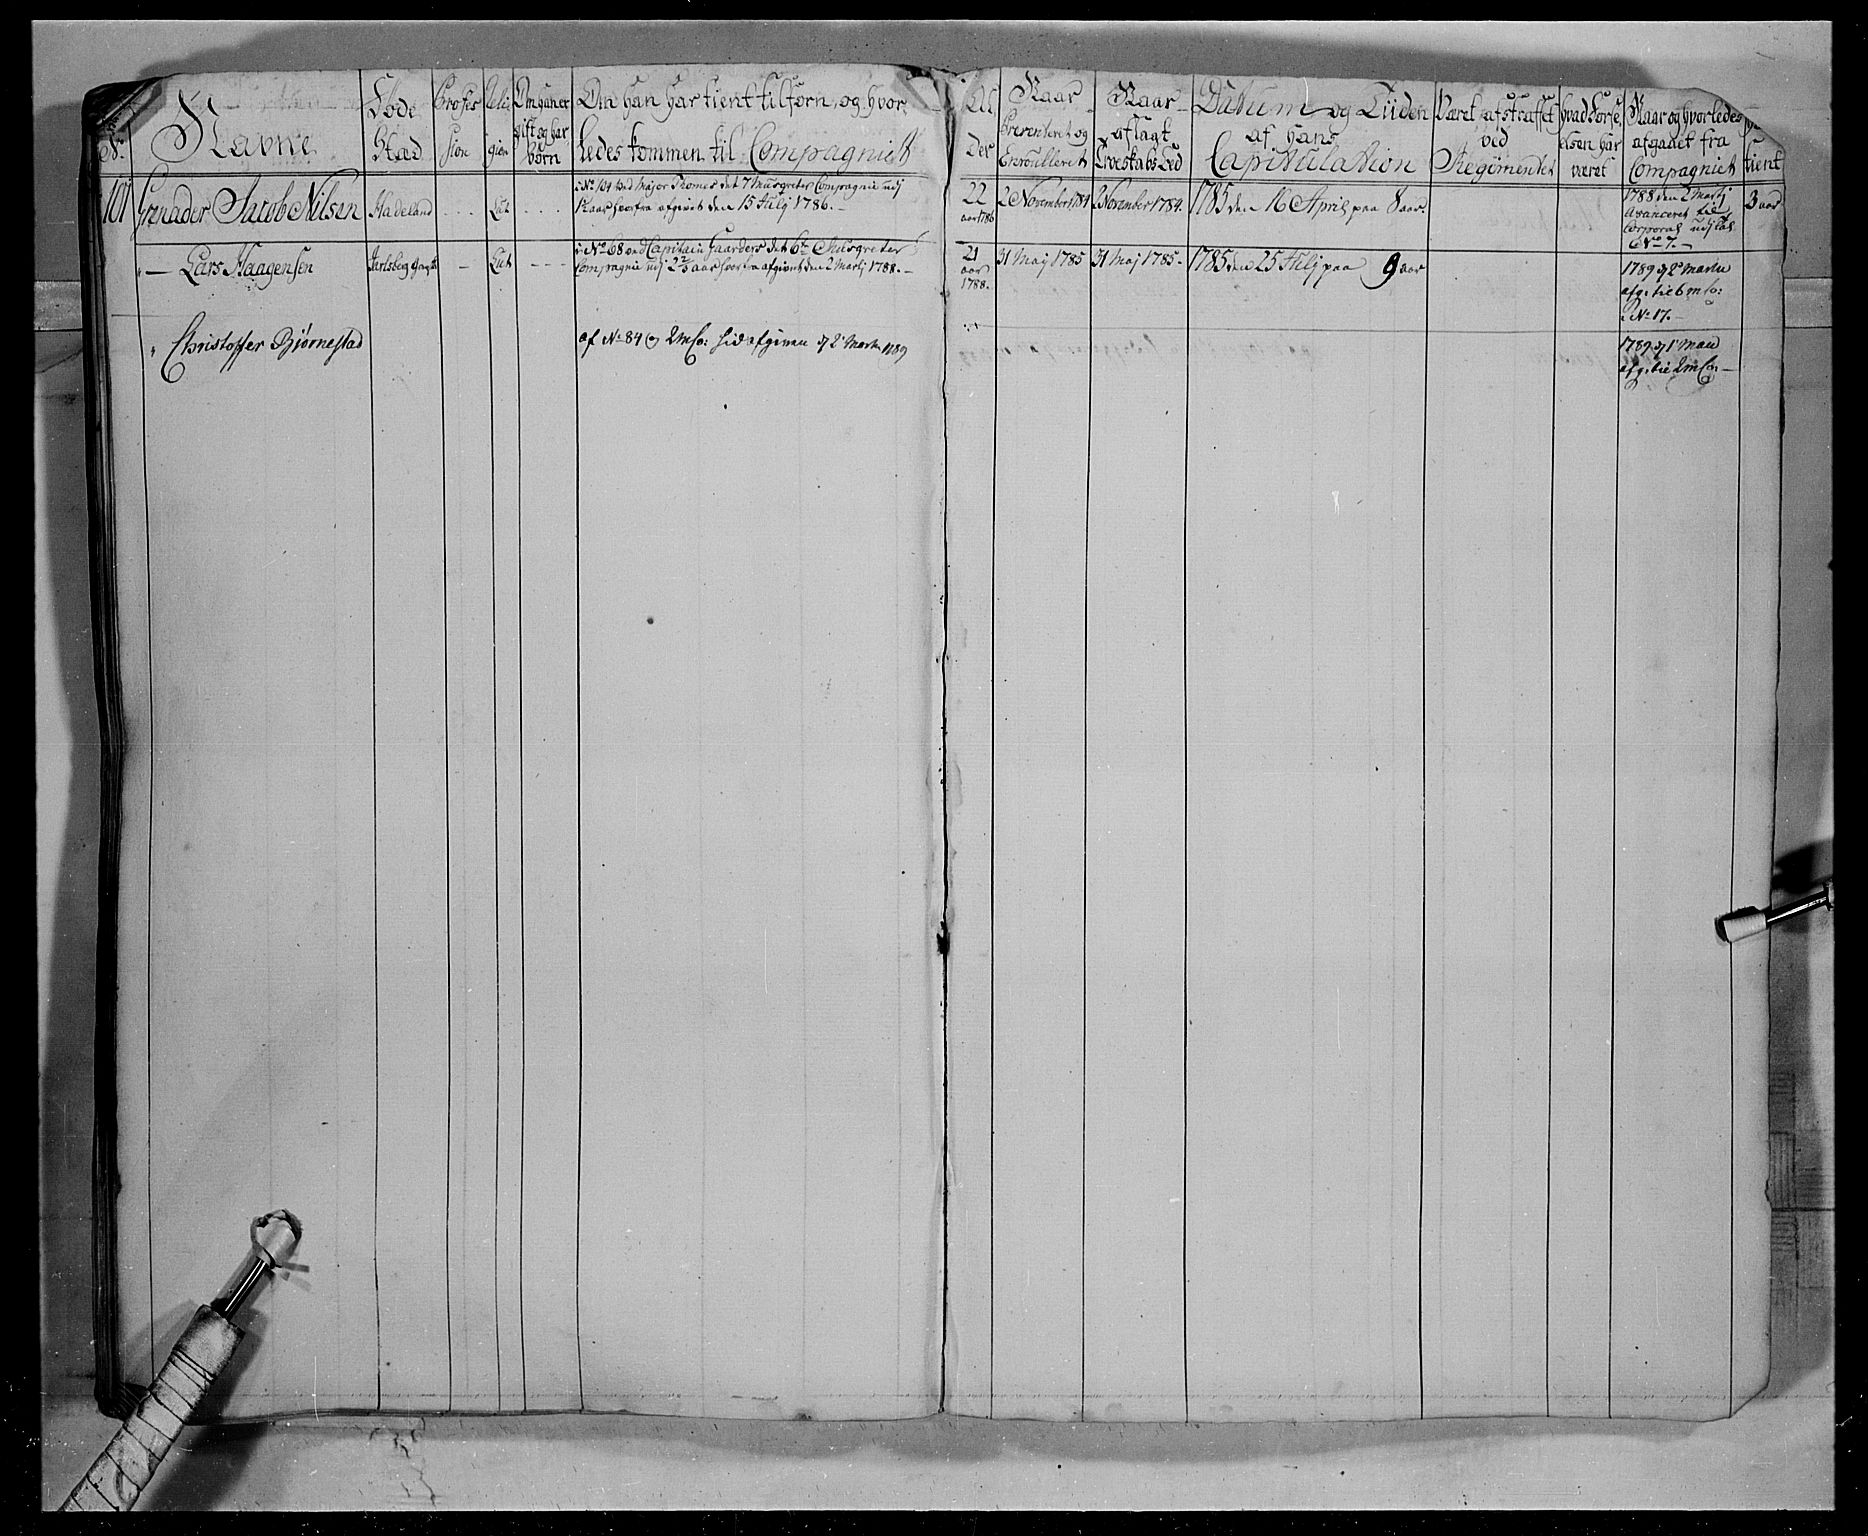 No.
Navne
Føde
Stad
Profes
sion
Reli
gion
Om han er
gift og har
børn
Om han har tient tilforn, og hvor
ledes kommen til Compagniet
Al
der
Naar
Presenteret og
Enroulleret
Naar
aflagt
Troeskabs Eed
Datum og Tiiden
af hans
Capitulation
Været afstraffet
ved
Regimentet
hvad Forse,
elsen har
været
Naar og hvorledes
afgaaet fra
Compagniet
tient
101 Grenader Jacob Nilsen
Hadeland
- - -
Lut
- - -
i No 104 ved Major Thomes det 7 Musqreter Compagnie udj
hvorfra afgivet den 15 Julij 1786. -
22
aar 1786
2 November 1784
2 November 1784.
1785 den 16 April paa 8 aar.
1788 den 2 Martij
Avanceret til
Corporal udj
No 7. -
3 aar
" — Lars Haagensen
Jarlsberg
-
Lut
- - -
i No 68 ved Capitain Gaarders det 6te Musqreter
Compagnie udj 2 2/3 aar hvorfra afgivet den 2 Martij 1788. -
21
aar
1788.
31 Maj 1785
31 Maj 1785 -
1785 den 25 Julij paa 9 aar
1789 d 2 Martii
afg. til 6 m Co:
No 17. -
" Christoffer Bjørnestad
af No 84 2 m Co: hid afgiven d 2 Martii 1789
1789 d 1
afg. til 2 m Co: -